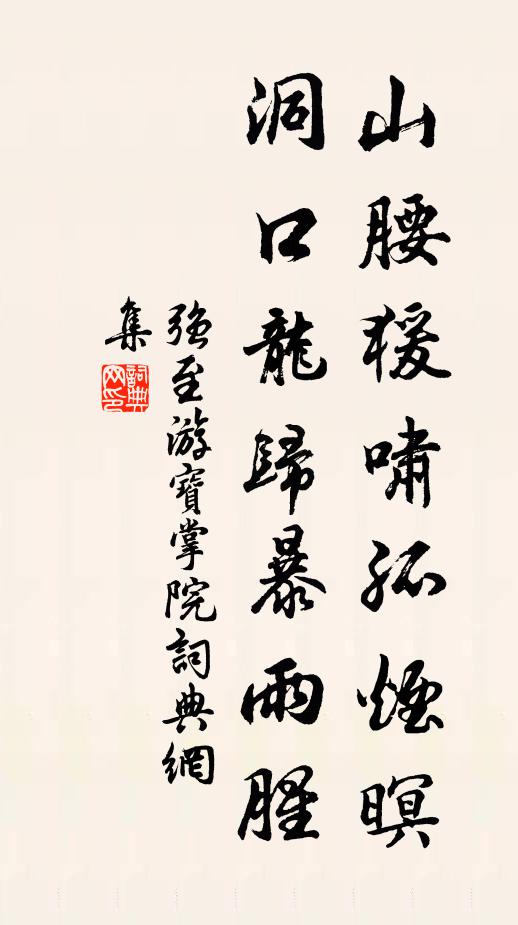 山腰猨啸孤煙暝
洞口龍歸暴雨腥
强至游寶掌院詞典網
集
詞典网印